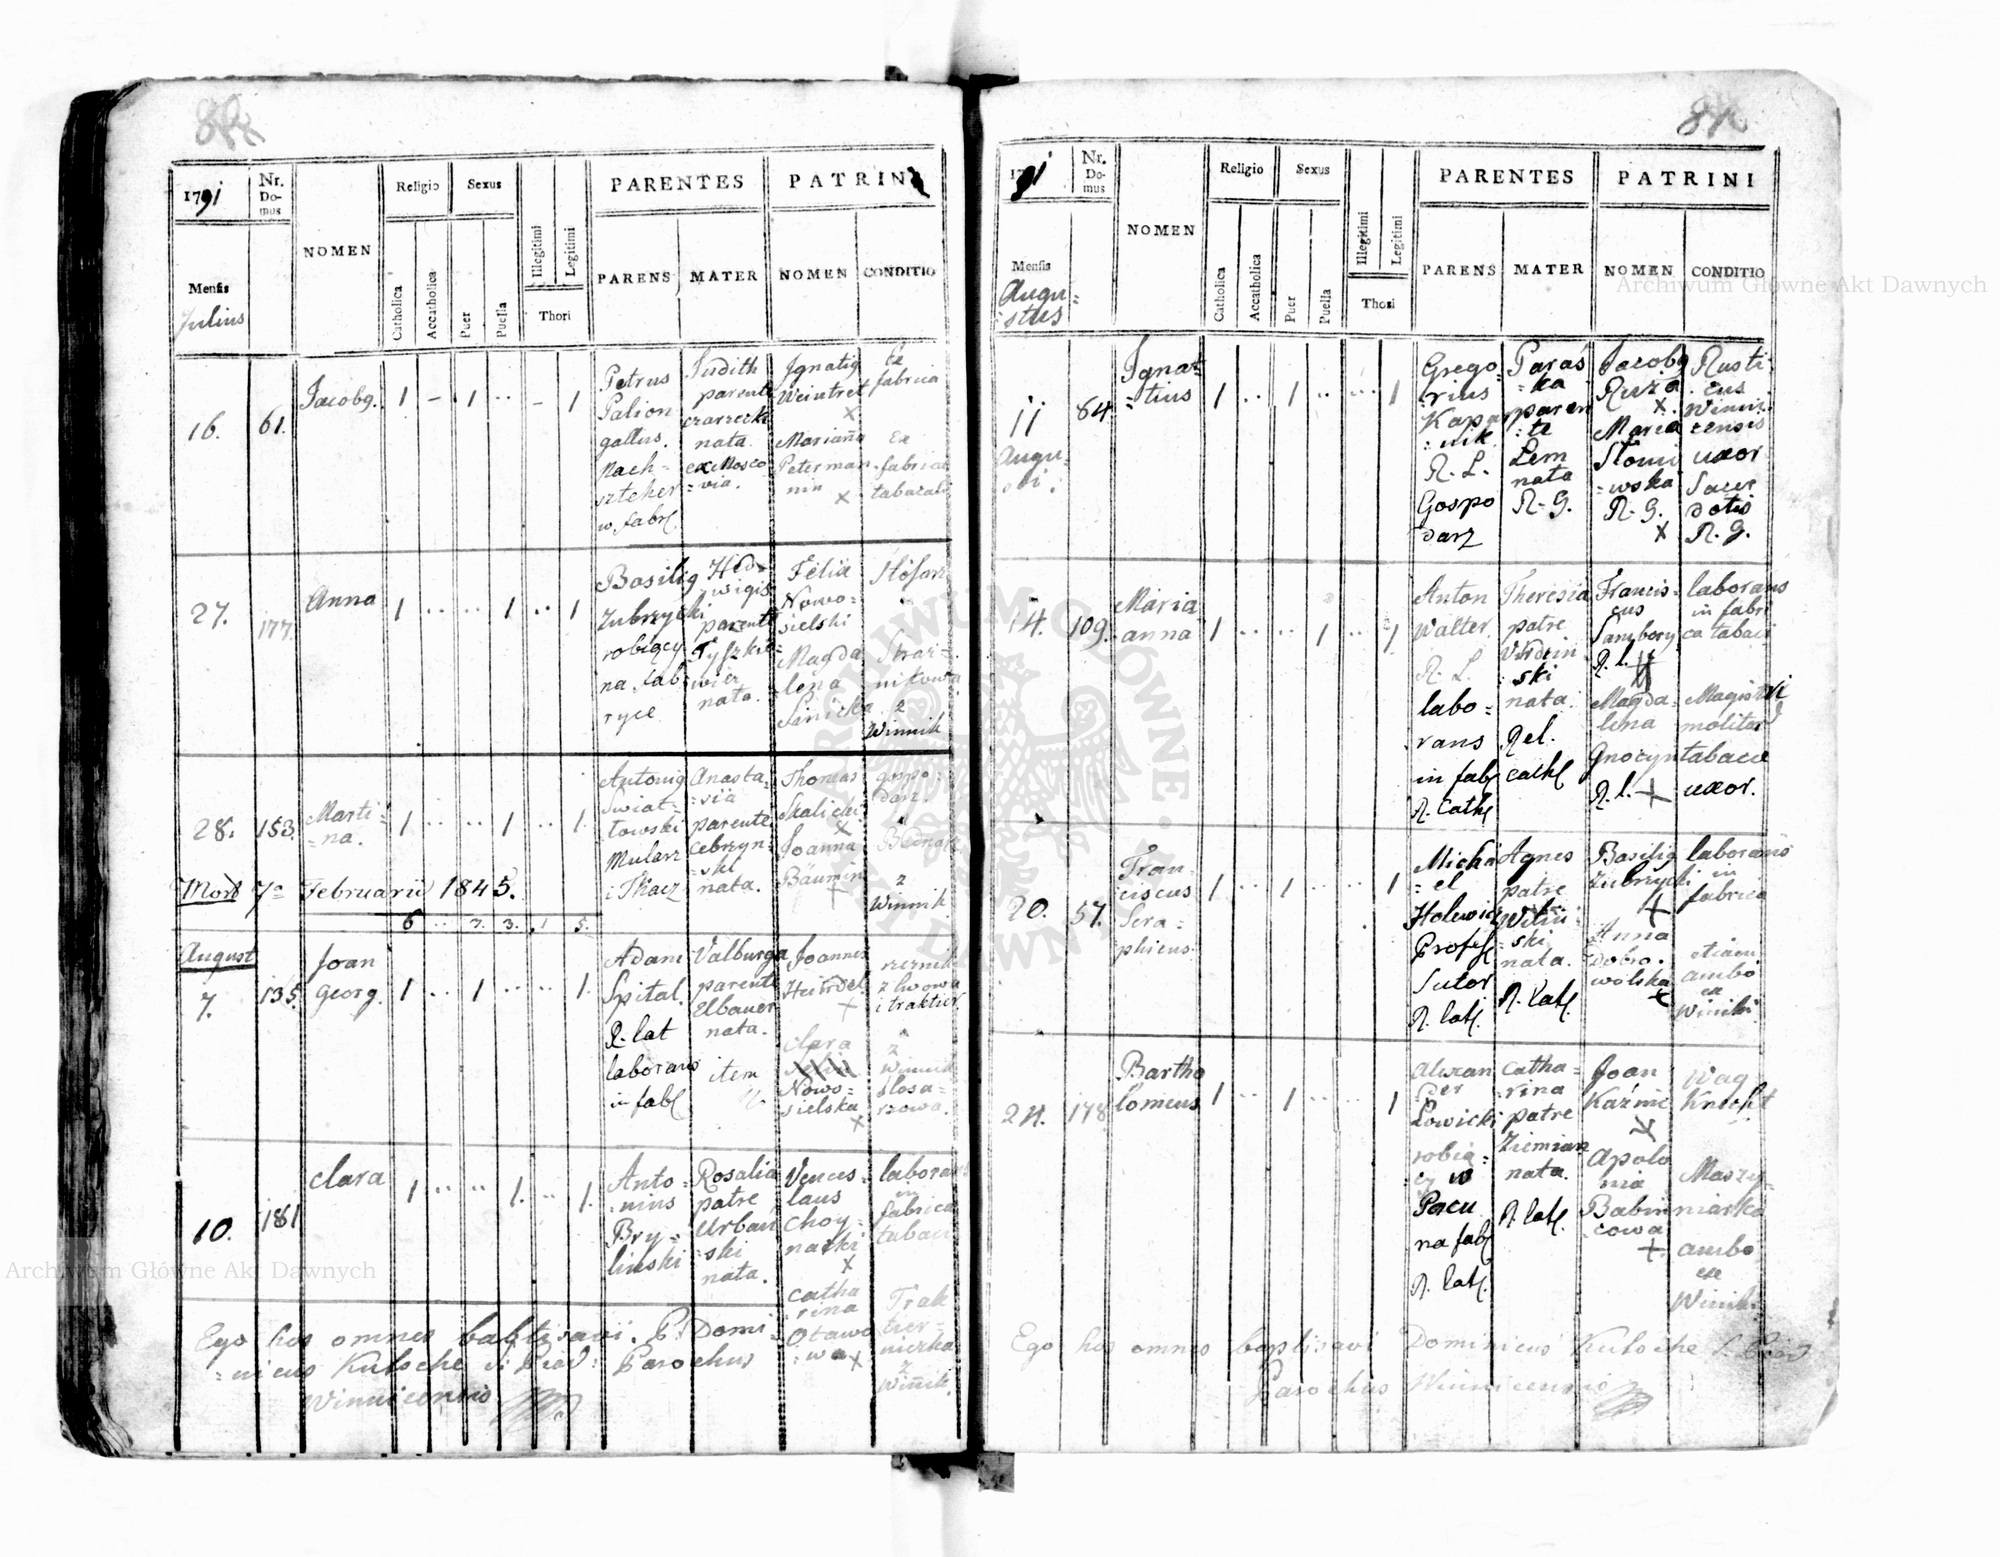 1791
Nr. Domus
NOMEN
Religio
Sexus
PARENTES
PATRINI
Mensis
Julius
Catholica
Accatholica
Puer
Puella
Illegitimi
Legitimi
Thori
PARENS
MATER
NOMEN
CONDITIO
16.
61.
Jacobg.
1 – 1 .. – 1
Petrus
Palion
gallus.
w. fabr.
Judith
parente
nata
ex Mosco
= via.
Ignatig
Weintret
x
Marianna
Peterman
nin x
fabrica
Ex
fabricae
tabacali
27.
177.
Anna
1 .. .. 1 .. 1
Basilig
Zubrzycki
robiący
na fab
ryce
Hed=
wigis
parente
Tyszkie=
wicz
nata.
Felix
Nowo=
sielski
Magda
lena
Sinicka
Slosarz
Straz=
nikowa
z
Winnik
28.
153.
Marti=
= na.
1 .. .. 1 .. 1.
Antonig
Swiat=
towski
Mularz
i Tkacz
Anasta=
= sia
parente
Cebrzyn=
= ski
nata.
Thomas
Skalicki
x
Joanna
Baumin
+
gospo=
darz.
Bednarz
z
Winnik
Mort 7a Februarii 1845.
6 .. 3. 3. 1 5.
August
7.
135.
Joan
Georg.
1 .. 1 .. .. 1.
Adam
Spital.
R. lat
laborans
in fabr.
Valburga
parente
Elbauer
nata.
item
Joannes
Heindel
+
Clara
Nowo=
sielska
x
rzeznik
z Lwowa
i traktier.
z
Winnik
slosa=
rzowa.
10.
181
Clara
1 .. .. 1. .. 1.
Anto=
nius
Bry=
linski
Rosalia
patre
Urban
= ski
nata.
Vences=
laus
Choy=
nacki
x
Catha
rina
Otawo
= wa x
laborans
in
fabrica
tabaci
Trak
tier=
niczka
z
Winnik.
Ego hos omnes baptisavi. P. Domi=
= nicus Kutsche Parochus
Winnicensis
1791
Nr. Domus
NOMEN
Religio
Sexus
PARENTES
PATRINI
Mensis
Augu=
stus
Catholica
Accatholica
Puer
Puella
Illegitimi
Legitimi
Thori
PARENS
MATER
NOMEN
CONDITIO
11
Augu=
sti.
64.
Ignat=
= tius
1 .. 1 .. .. 1
Grego=
rius
Kapar
= nik
R. L.
Gospo
darz
Paras
= ka
paren
= te
Lem
nata
R. G.
Jacobg
Ruza
x.
Maria
Slomi
= wska
R. G.
x
Rusti
cus
Winni=
censis
uxor
Sacer
dotis
R. G.
14.
109.
Maria
anna
1 .. .. 1 .. 1
Anton
Walter.
R. L.
labo=
rans
in fabr
R. Cath
Theresia
patre
ski
nata.
Rel.
cathl
Francis=
cus
Sambory
R. l.
Magda=
lena
Gnoryn
R. l. +
laborans
in fabri
ca tabaci
Magistri
molitor
tabacae
uxor.
20.
57.
Fran=
ciscus
Sera=
phicus.
1 .. 1 .. .. 1
Micha
= el
Holewicz
Profess
Sutor
R. lat.
Agnes
patre
Witw
= ski
nata.
R. lat.
Basilig
Zubrzycki
+
Anna
Dobro.
wolska
x
laborans
in
fabrica
etiam
ambo
ex
Winiki.
24.
178.
Bartho
lomeus
1 .. 1 .. .. 1
Alexan
der
Lowicki
robią=
cy w
Pacu
na fabr
R. lat.
Catha=
rina
patre
Ziemian
nata.
R. lat.
Joan
Kazmi
x
Apolo
nia
Babin
cowa
+
Wag
Knecht
Maszy=
niarka
ambo
ex
Winiki
Ego hos omnes baptisavi Dominicus Kutsche
Parochus Winnicensis
Archiwum Główne Akt Dawnych
Archiwum Główne Akt Dawnych
ARCHIWUM GŁÓWNE · AKT DAWNYCH ·